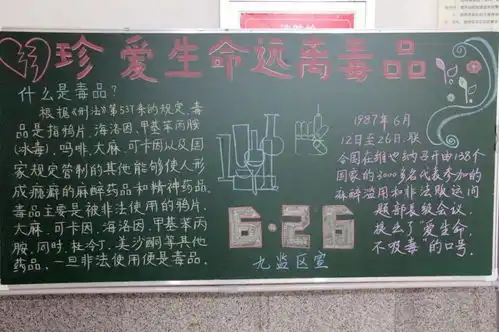 珍爱生命远离毒品
什么是毒品?
根据《刑法》第357条的规定,毒
品是指鸦片、海洛因、甲基苯丙胺
(冰毒)、吗啡、大麻、可卡因以及国
家规定管制的其他能够使人形
成瘾癖的麻醉药品和精神药品。
毒品主要是被非法使用的鸦片、
大麻、可卡因、海洛因、甲基苯丙
胺,同时,杜冷丁、美沙酮等其他
药品,一旦非法使用便是毒品。
6·26
九监区宣
1987年6月
12日至26日,联
合国在维也纳召开由138个
国家的3000多名代表参加的
麻醉滥用和非法贩运问
题部长级会议.
提出了"爱生命,
不吸毒"的口号.